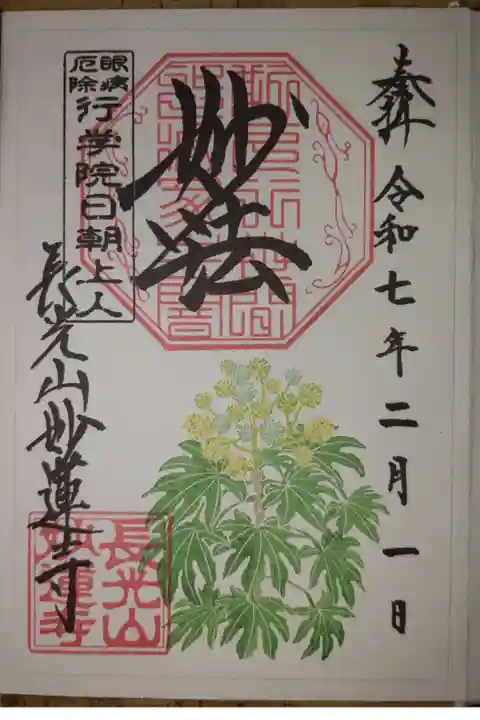 奉拝 令和七年二月一日
妙法
眼病
厄除
行学院日朝上人
長光山妙蓮寺
長光山
妙蓮寺